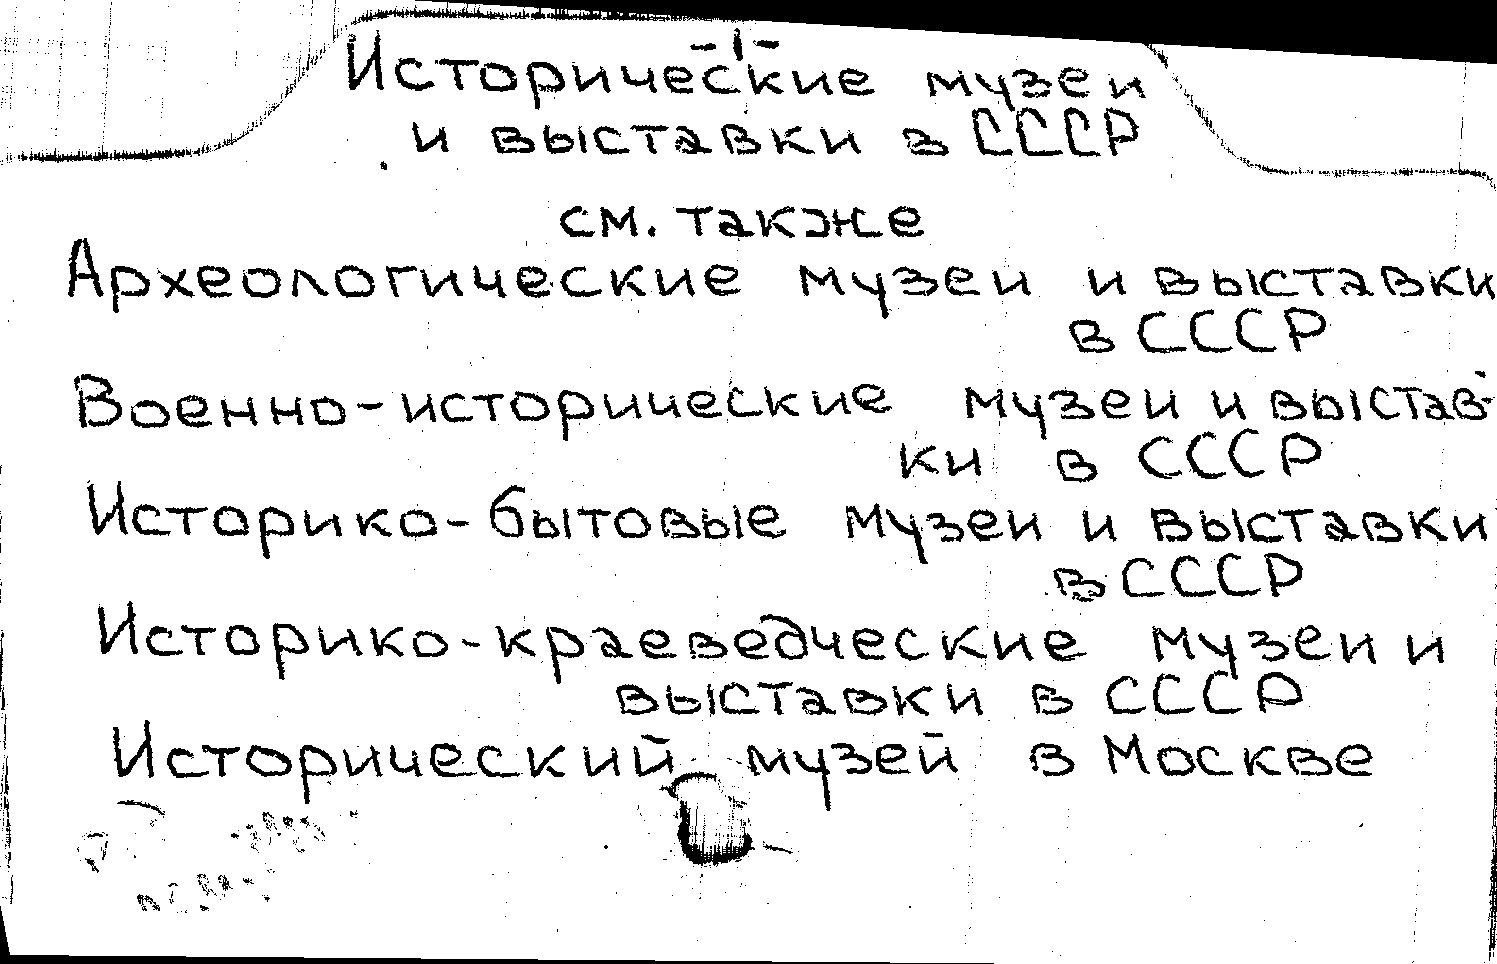 Исторические музеи
и выставки в СССР
см. также
Археологические музеи и выставки
в СССР
Военно-исторические музеи и выстав-
ки в СССР
Историко-бытовые музеи и выставки
в СССР
Историко-краеведческие музеи и
выставки в СССР
Исторический музей в Москве